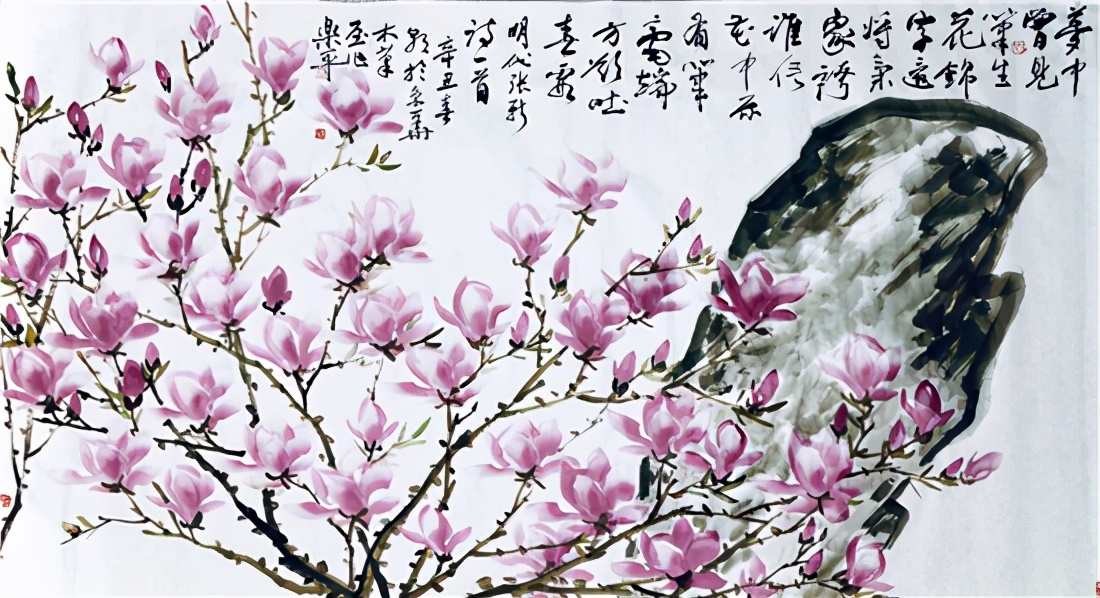 夢中
曾見
筆生
花錦
字還
將氣
象誇
誰信
花中原
有筆
毫端
方欲吐
春霞
明代張新
詩一首
辛丑春
於京華
木筆
樂平